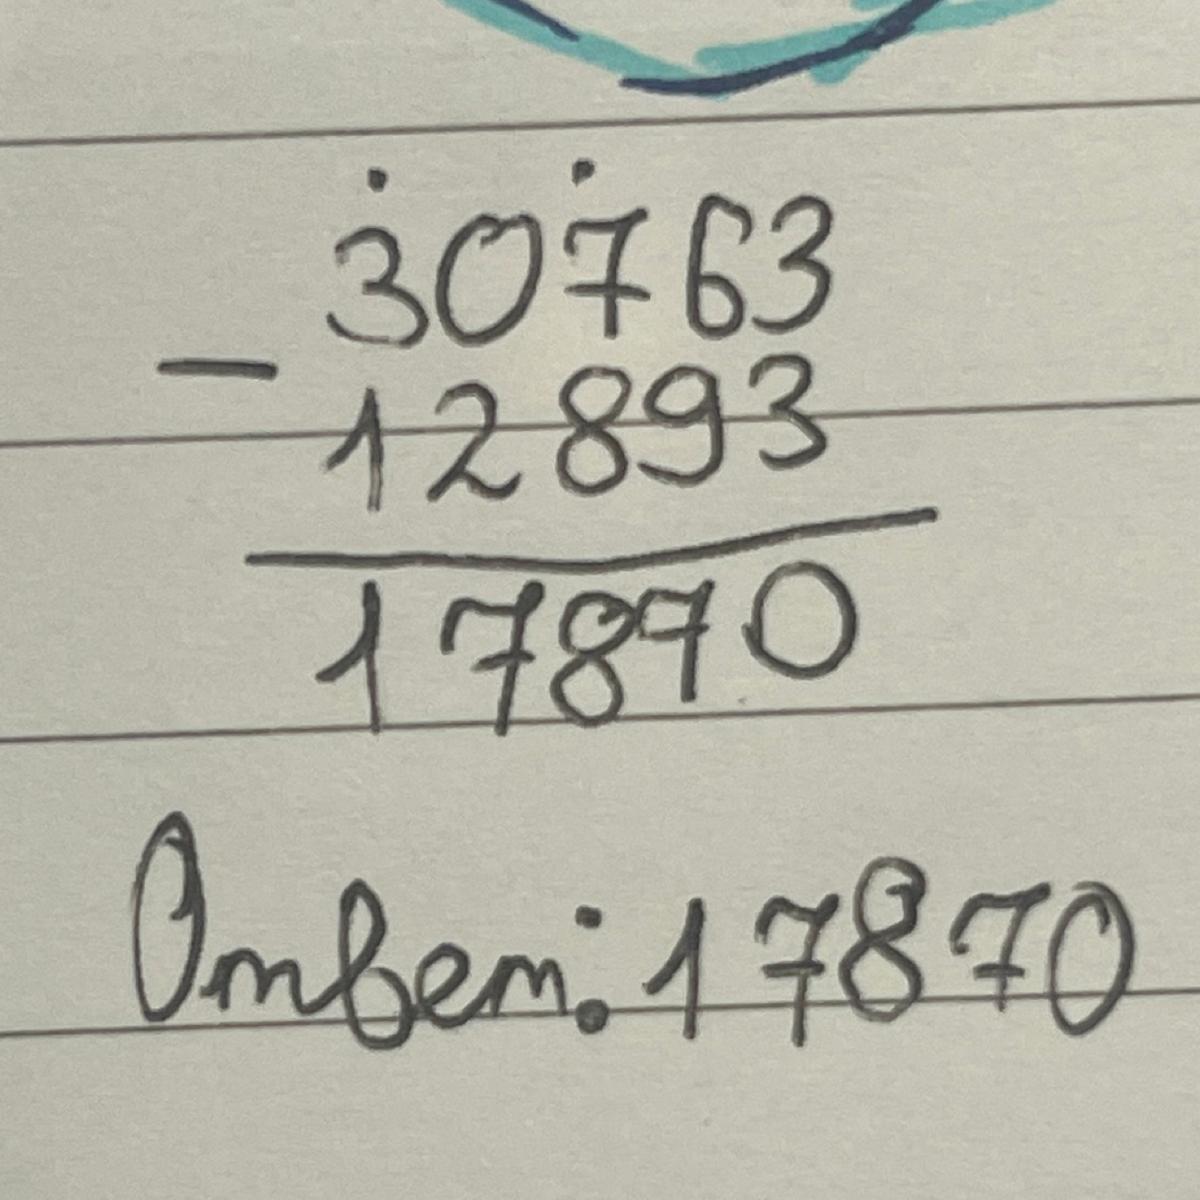 30763
− 12893
17870
Ответ: 17870